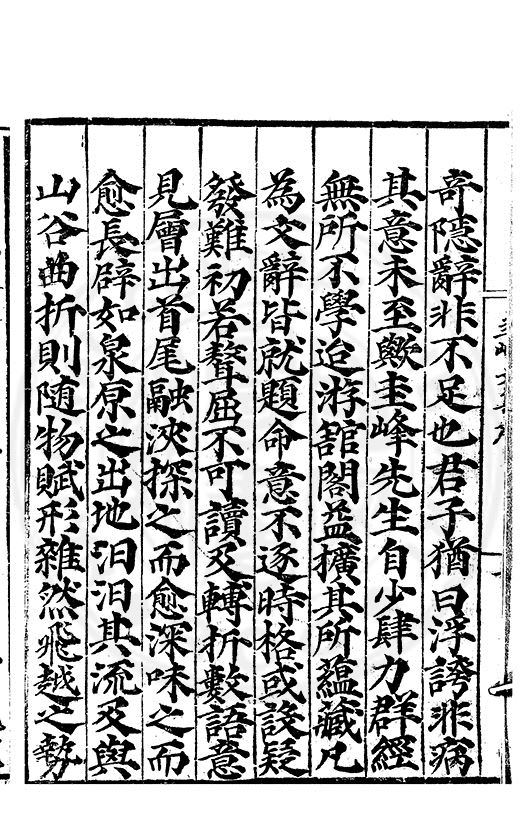 奇隱辭非不足也君子猶曰浮誇非病
其意未至歟圭峰先生自少肆力群經
無所不學迨游舘閣益擴其所蘊藏凡
為文辭皆就題命意不逐時格或設疑
發難初若聱屈不可讀及轉折數語意
見層出首尾融浹探之而愈深味之而
愈長辟如泉原之出地汩汩其流及與
山谷曲折則随物賦形雜然飛越之勢